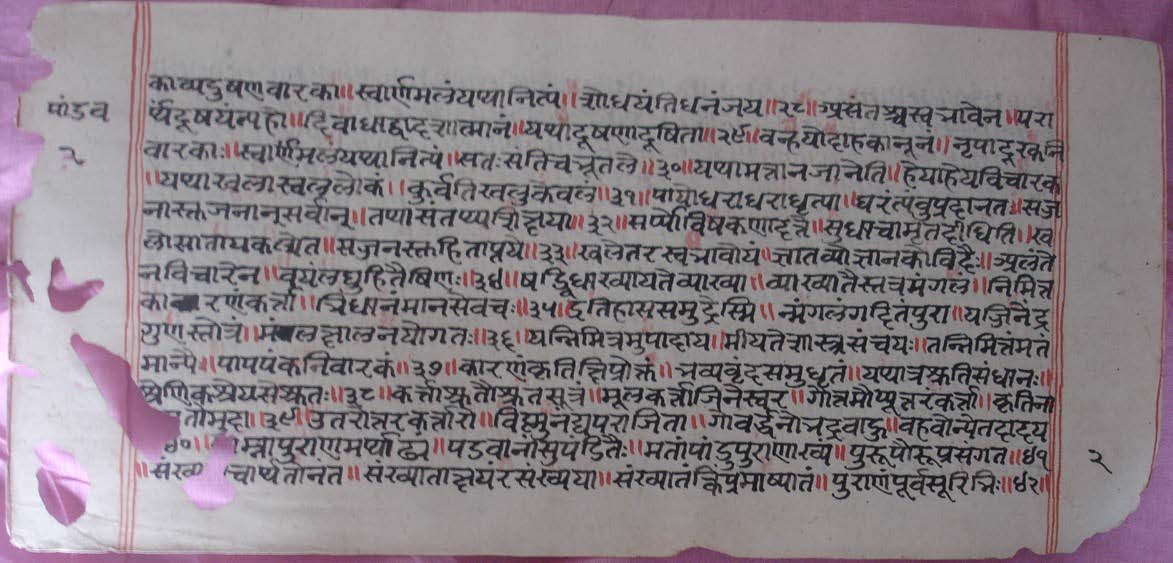 काव्यदुषणवारका॥स्वार्णमलंयथानित्यं॥शोधयंतिधनंजय॥२८॥असंतश्चस्वभावेन॥परा
पांडव
र्थंदूषयंत्यहो॥दिवाधाद्वादशात्मानं॥यथादूषणदूषिता॥२९॥वन्हयोदाहकानूनं॥नृपादूरकनि
२
वारकाः॥स्वार्णमलयथानित्यं॥सतःसंतिचभूतले॥३०॥यथामत्तानजानंति॥हेयाहेयविचारक
॥यथाखलास्वलूलोकं॥कुर्वंतिखलुकेवलं॥३१॥पायोधराधराधृत्या॥धरंत्यंवुप्रदानत॥सज
नास्तजनान्सर्वान्॥तथासतथ्यशिक्षया॥३२॥सर्प्पोविषकणादत्ते॥सुधाचामृतदीधिति॥ख
लोसातायकल्पेत॥सज्जनस्तहिताप्रये॥३३॥खलेतरस्वभावोयं॥ज्ञातव्योज्ञानकोविदैः॥अलंते
नविचारेन॥वयंलघुहितैषिणः॥३४॥षद्विधाख्यायतेव्याख्या॥व्याख्यातैस्तत्रमंगलं॥निमित्त
कारणंकर्त्ता॥भिधानमानसेवचः॥३५॥इतिहाससमुद्रेस्मि॥न्मंगलंगदितंपुरा॥यज्जिनेंद्र
गुणस्तोत्रं॥मलक्षालनयोगतः॥३६॥यन्निमित्रमुपादाय॥मीयतेशास्त्रसंचयः॥तन्निमित्तंमतं
मान्यैः॥पापपंकनिवारकं॥३७॥कारणंकृतिभिप्रोक्तं॥भव्यवृंदसमुधृतं॥यथात्रश्रुतिसंधानः॥
श्रेणिकश्रेयसेश्रुतः॥३८॥कर्त्ताश्रुतौश्रुतसूत्रं॥मूलकर्त्ताजिनेस्वर॥गौत्तमौप्युत्तरकर्त्ता॥कृतिना
तोमुदा॥३९॥उतरोत्तरकर्त्तारो॥विष्णुनंद्यपराजिता॥गोवर्द्धनोभद्रवाहु॥वहवोन्येतदादय
४०॥म्नापुराणमर्थाढ्य॥पडवानांसुपंडितैः॥मतांपांडुपुराणाख्यं॥पुरूपौरूषसंगत॥४१
२
॥संख्याचार्थतोनत॥संख्याताक्षरसंख्यया॥संख्यातंह्निप्रमाख्यातं॥पुराणंपूर्वसूरिभिः॥४२॥